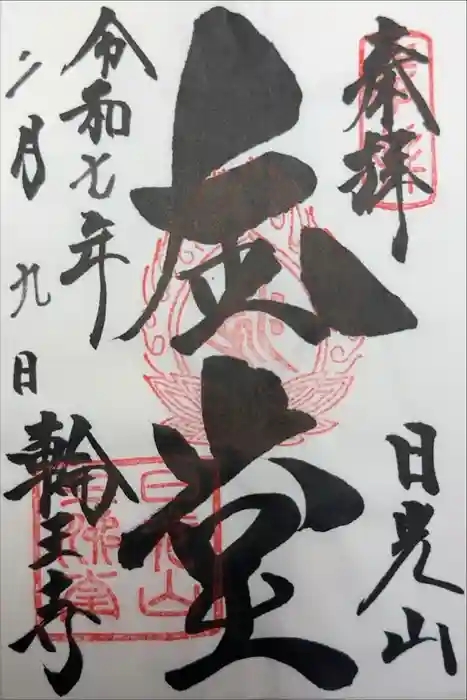 奉拝
日光山
堂
令和七年
二月九日
輪王寺
日光山